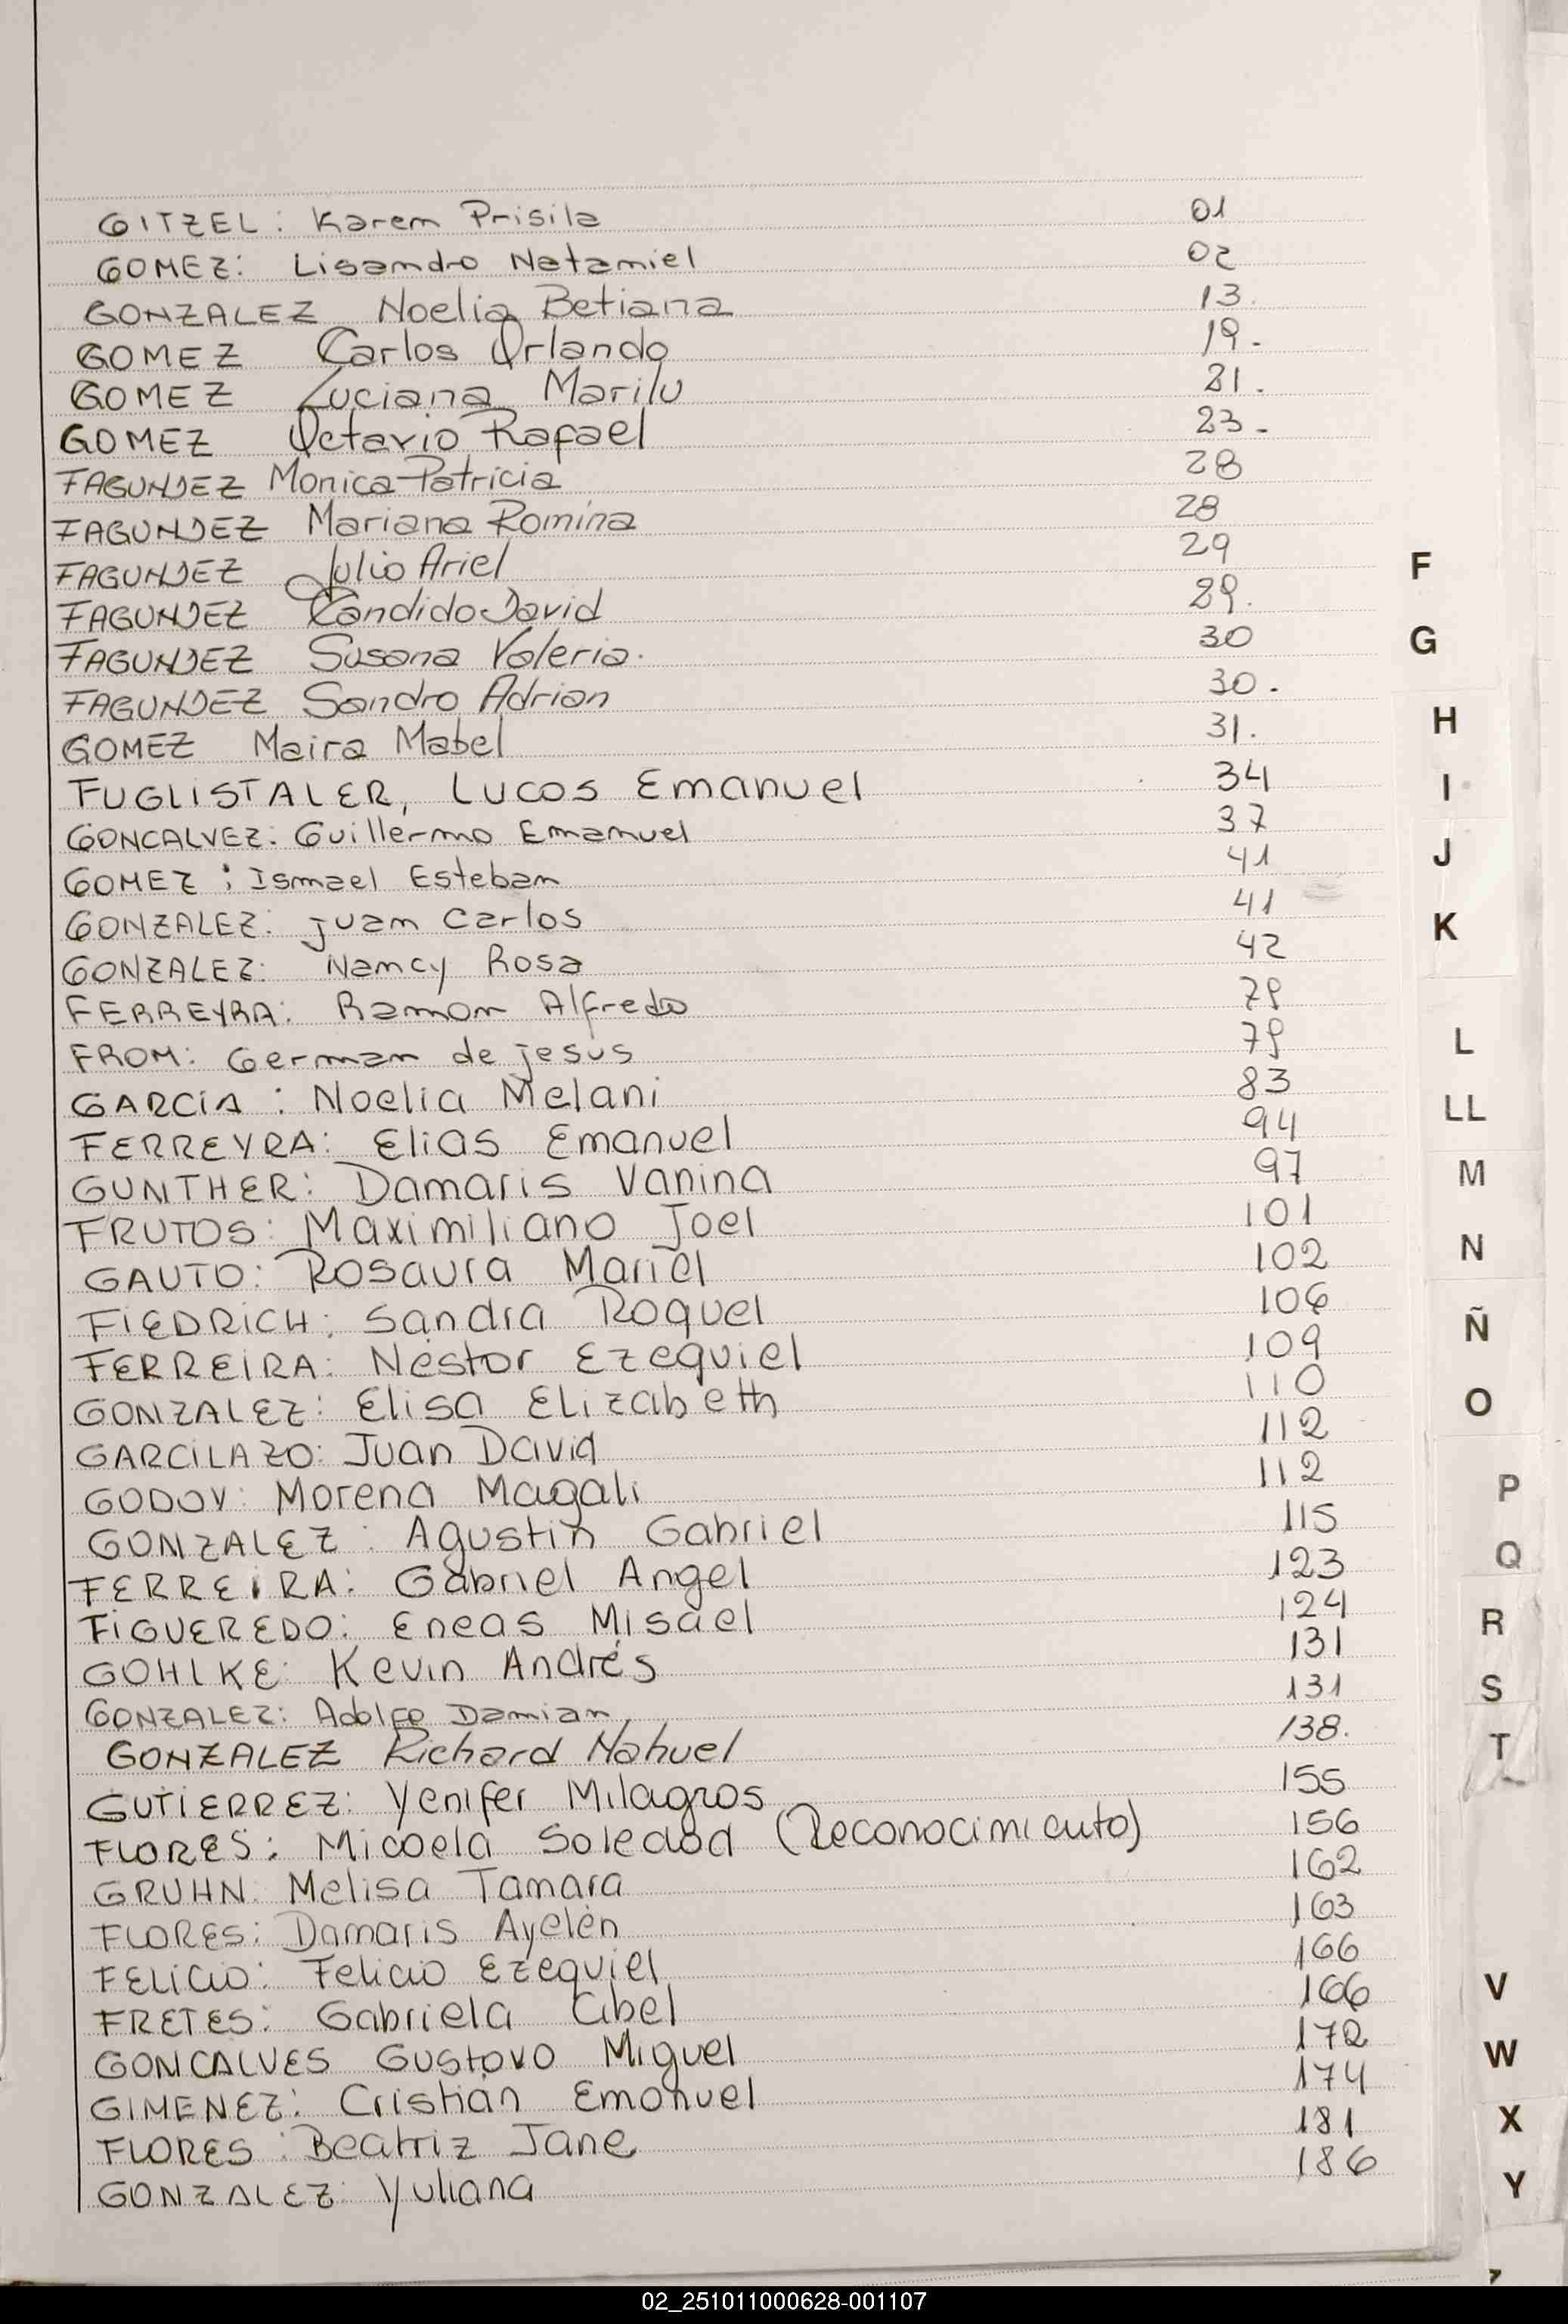 GITZEL: Karem Prisila 01
GOMEZ: Lisamdro Natamiel 02
GONZALEZ Noelia Betiana 13.
GOMEZ Carlos Orlando 19.-
GOMEZ Luciana Marilu 21.
GOMEZ Octavio Rafael 23.-
FAGUNDEZ Monica Patricia 28
FAGUNDEZ Mariana Romina 28
FAGUNDEZ Julio Ariel 29
FAGUNDEZ Candido David 29.
FAGUNDEZ Susana Valeria. 30
FAGUNDEZ Sandro Adrian 30.
GOMEZ Maira Mabel 31.
FUGLISTALER, Lucas Emanuel 34
GONCALVEZ: Guillermo Emamuel 37
GOMEZ: Ismael Estebam 41
GONZALEZ: juam Carlos 41
GONZALEZ: Namcy Rosa 42
FERREYRA: Ramom Alfredo 79
FROM: Germam de jesus 79
GARCIA: Noelia Melani 83
FERREYRA: Elias Emanuel 94
GUNTHER: Damaris Vanina 97
FRUTOS: Maximiliano Joel 101
GAUTO: Rosaura Mariel 102
FIEDRICH: Sandra Raquel 106
FERREIRA: Nestor Ezequiel 109
GONZALEZ: Elisa Elizabeth 110
GARCILAZO: Juan David 112
GODOY: Morena Magali 112
GONZALEZ: Agustin Gabriel 115
FERREIRA: Gabriel Angel 123
FIGUEREDO: Eneas Misael 124
GOHLKE: Kevin Andrés 131
GONZALEZ: Adolfo Damian 131
GONZALEZ Richard Nahuel 138.
GUTIERREZ: Yenifer Milagros 155
FLORES: Micaela Soledad (Reconocimiento) 156
GRUHN: Melisa Tamara 162
FLORES: Damaris Ayelén 163
FELICIO: Felicio Ezequiel 166
FRETES: Gabriela Cibel 166
GONCALVES Gustavo Miguel 172
GIMENEZ: Cristian Emanuel 174
FLORES: Beatriz Jane 181
GONZALEZ: Yuliana 186
F
G
H
I
J
K
L
LL
M
N
Ñ
O
P
Q
R
S
T
V
W
X
Y
02_251011000628-001107